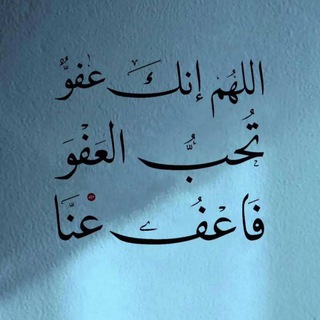 اللهُم إنكَ عفوٌّ
تُحبُّ العَفْوَ
فَاعْفُ عْنَّا